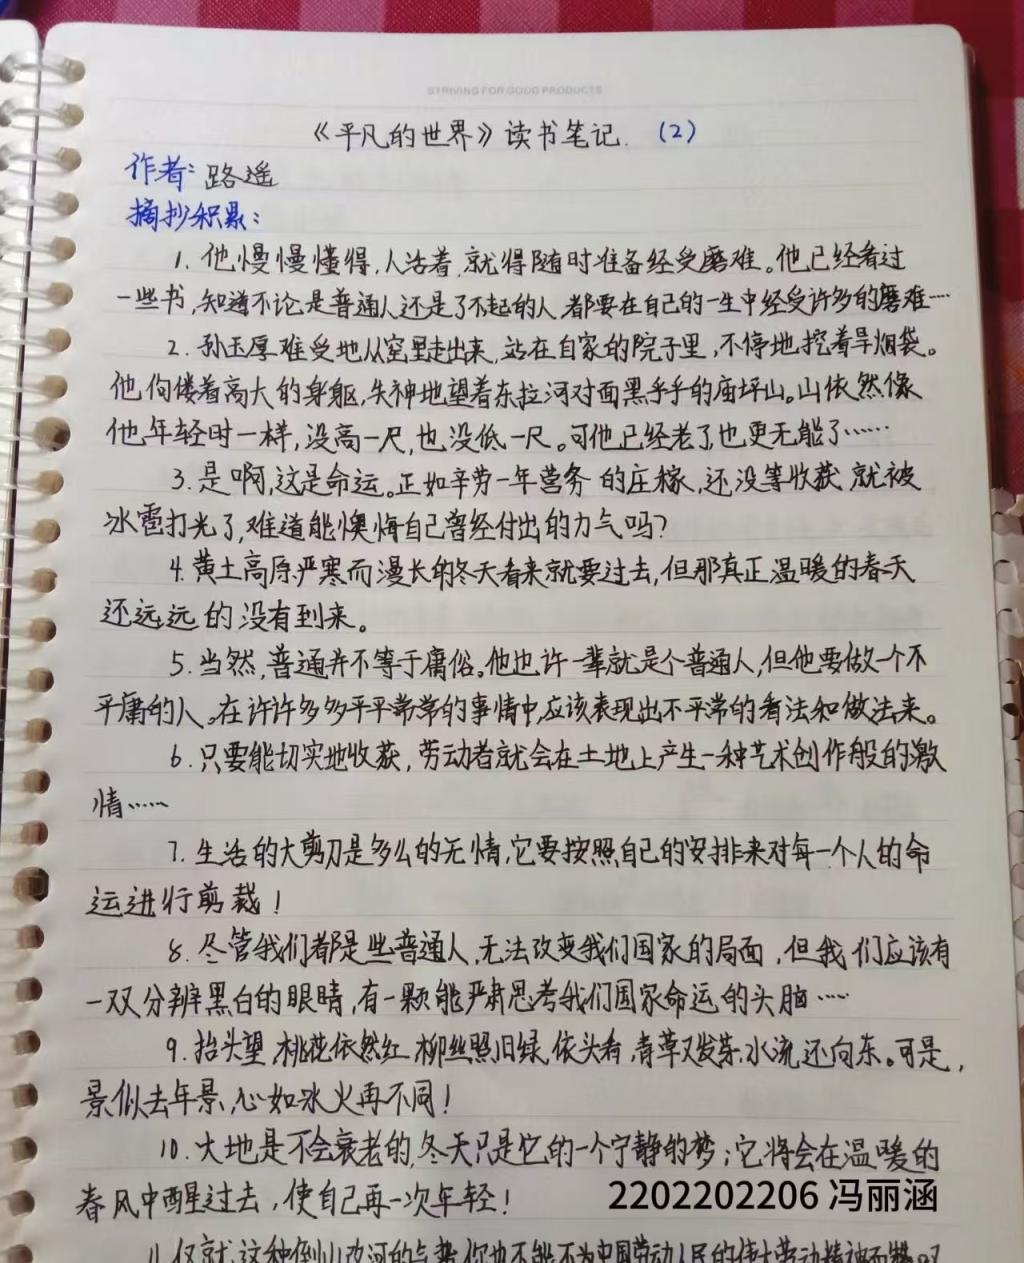 STRIVING FOR GOOD PRODUCTS
《平凡的世界》读书笔记. (2)
作者: 路遥
摘抄积累:
1. 他慢慢懂得,人活着,就得随时准备经受磨难。他已经看过
一些书,知道不论是普通人还是了不起的人,都要在自己的一生中经受许多的磨难……
2. 孙玉厚难受地从窑里走出来,站在自家的院子里,不停地挖着旱烟袋。
他佝偻着高大的身躯,失神地望着东拉河对面黑乎乎的庙坪山。山依然像
他年轻时一样,没高一尺,也没低一尺。可他已经老了,也更无能了……
3. 是啊,这是命运。正如辛劳一年营务的庄稼,还没等收获,就被
冰雹打光了,难道能懊悔自己曾经付出的力气吗?
4. 黄土高原严寒而漫长的冬天看来就要过去,但那真正温暖的春天
还远远的没有到来。
5. 当然,普通并不等于庸俗。他也许一辈就是个普通人,但他要做一个不
平庸的人。在许许多多平平常常的事情中,应该表现出不平常的看法和做法来。
6. 只要能切实地收获,劳动者就会在土地上产生一种艺术创作般的激
情……
7. 生活的大剪刀是多么的无情,它要按照自己的安排来对每一个人的命
运进行剪裁!
8. 尽管我们都是些普通人,无法改变我们国家的局面,但我们应该有
一双分辨黑白的眼睛,有一颗能严肃思考我们国家命运的头脑……
9. 抬头望,桃花依然红,柳丝照旧绿,低头看,青草又发芽,水流还向东。可是,
景似去年景,心如冰火再不同!
10. 大地是不会衰老的,冬天只是它的一个宁静的梦;它将会在温暖的
春风中醒过去,使自己再一次年轻!
2202202206 冯丽涵
11. 仅就这种倒山改河的气势,你也不能不为中国劳动人民的伟大劳动精神而